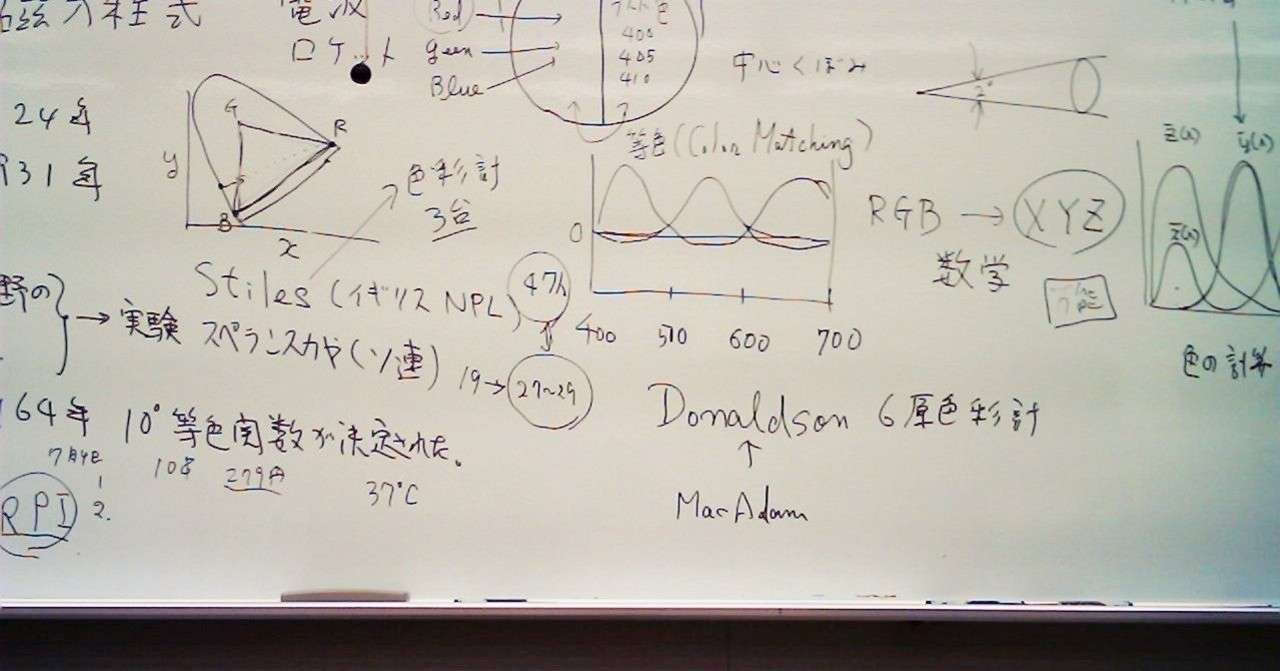 電波
ロケット
Red
green
Blue
400
405
410
?
中心くぼみ
2°
24年
931年
G
R
B
y
x
色彩計
3台
等色(Color Matching)
0
400
510
600
700
RGB → XYZ
数学
z̄(λ)
ȳ(λ)
x̄(λ)
色の計算
野の
→ 実験
Stiles (イギリス NPL)
47人
スペランスカヤ(ソ連)
19→ 27~29
Donaldson 6原色彩計
↑
MacAdam
64年 10°等色関数が決定された。
37°C
RPI
1
2.